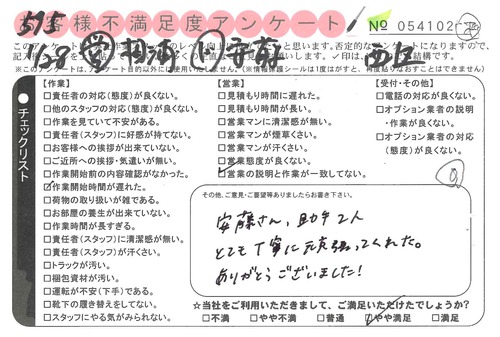 お客様不満足度アンケート
No 054102
※このアンケートは、アンケート目的以外には使用いたしません。
【作業】
□責任者の対応(態度)が良くない。
□他のスタッフの対応(態度)が良くない。
□作業を見ていて不安がある。
□責任者(スタッフ)に好感が持てない。
□お客様への挨拶が出来ていない。
□ご近所への挨拶・気遣いが無い。
□作業開始前の内容確認がなかった。
□作業開始時間が遅れた。
□荷物の取り扱いが雑である。
□お部屋の養生が出来ていない。
□作業時間が長すぎる。
□責任者(スタッフ)に清潔感が無い。
□責任者(スタッフ)が汗くさい。
□トラックが汚い。
□梱包資材が汚い。
□運転が不安(下手)である。
□靴下の履き替えをしてない。
□スタッフにやる気がみられない。
【営業】
□見積もり時間に遅れた。
□見積もり時間が長い。
□営業マンに清潔感が無い。
□営業マンが煙草くさい。
□営業マンが汗くさい。
□営業態度が良くない。
□営業の説明と作業が一致してない。
【受付・その他】
□電話の対応が良くない。
□オプション業者の説明
・作業が良くない。
□オプション業者の対応
(態度)が良くない。
チェックリスト
その他、ご意見・ご要望等ありましたらお書き下さい。
安藤さん、助手2人
とても丁寧に頑張ってくれた。
ありがとうございました!
☆当社をご利用いただきまして、ご満足いただけたでしょうか?
□不満 □やや不満 □普通 □やや満足 □満足